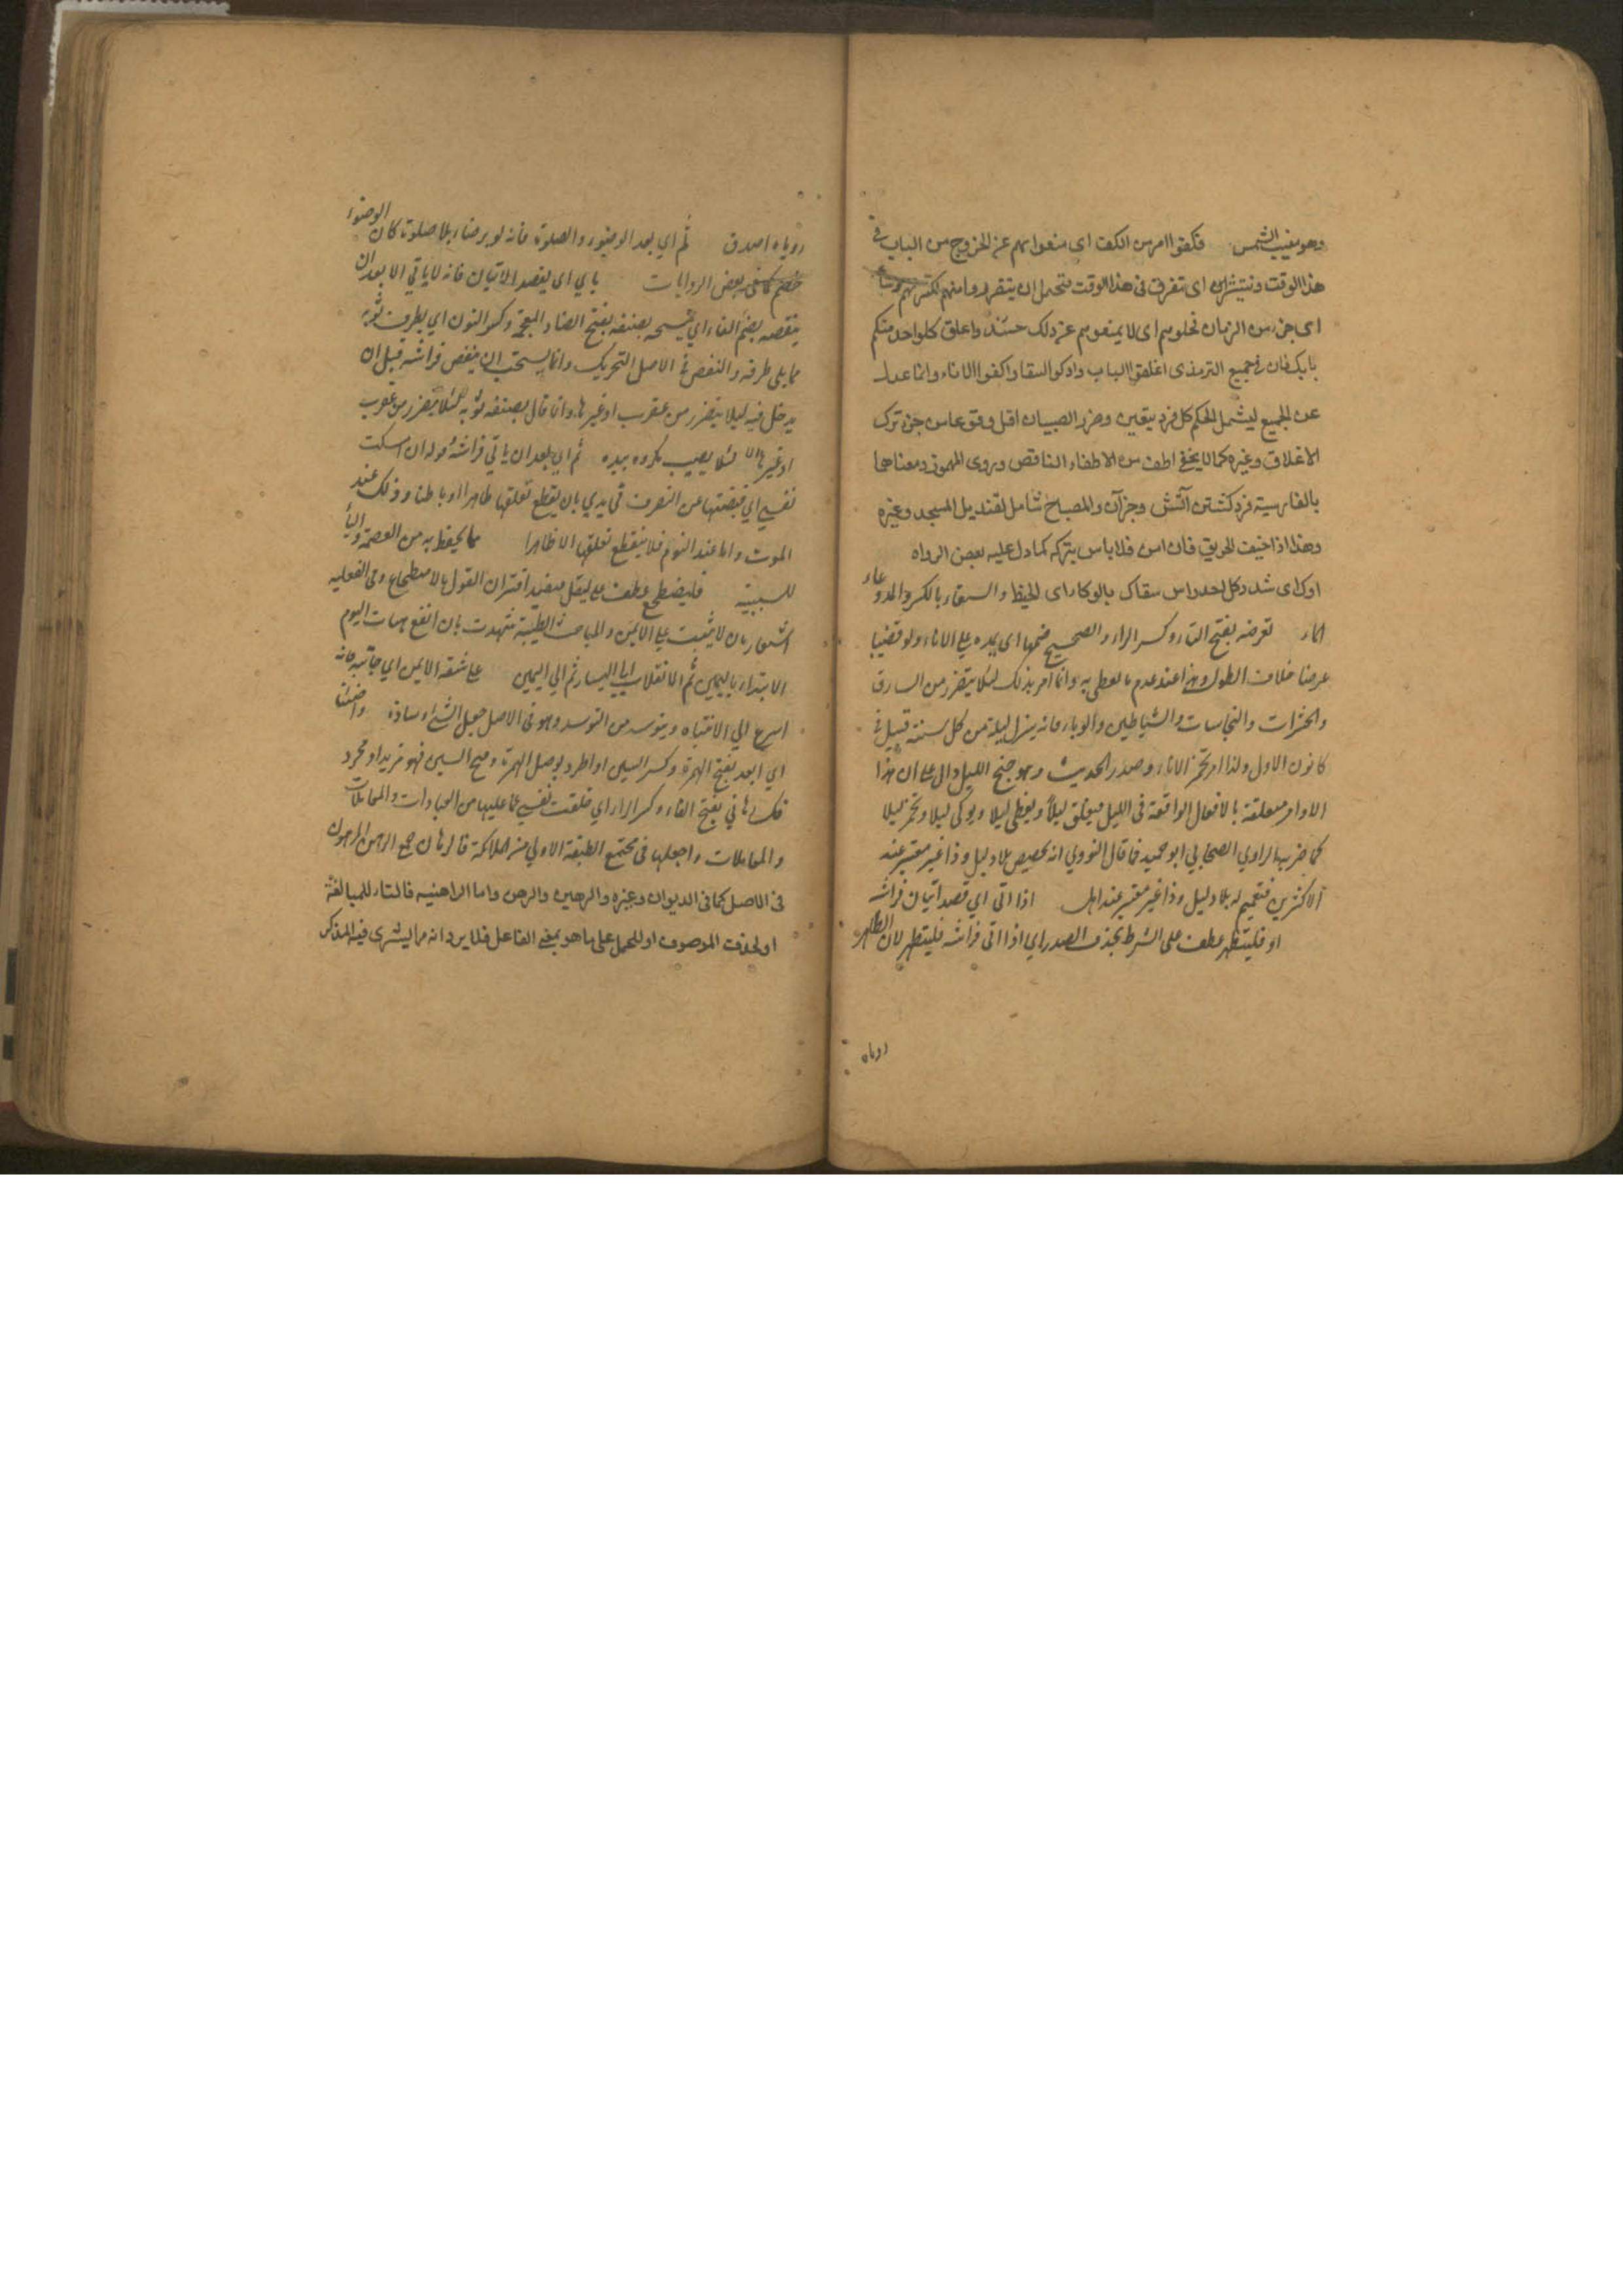 وهو مغيب الشمس فكفوا امر من الكف اى امنعوا هم عن الخروج من الباب فى
هذا الوقت وتنتشر اى تفرق فى هذا الوقت فتحمل ان يتضرروا منهم لكثرتهم
اى جزء من الزمان فخلوهم اى لا يمنعوهم عن ذلك حينئذ واغلق كل واحد منكم
بابك فان فى جميع الترمذى اغلقوا الباب واوكوا السقا واكفوا الاناء وانما عدل
عن الجميع ليشمل الحكم كل فرد بيقين وضرر الصبيان اقل وقوعا من ترك
الاغلاق وغيره كما لا يخفى اطف من الاطفاء الناقص ويروى المهموز ومعناهما
بالفارسية فرو كشتن آتش وجز آن والمصباح شامل لقنديل المسجد وغيره
وهذا اذا خيف الحريق فان امن فلا باس بتركه كما دل عليه بعض الرواه
اوك اى شد وكل احد راس سقاك بالوكاء اى الخيط والسقاء بالكسر والمد وعاء
الماء تعرضه بفتح التاء وكسر الراء والصحيح ضمها اى يمده على الاناء ولو قضيبا
عرضا خلاف الطول وهذا عند عدم ما يغطى به وانما امر بذلك لئلا يتضرر من السارق
والحشرات والنجاسات والشياطين والوباء فانه ينزل ليلة من كل سنة قيل فى
كانون الاول ولذا امر بتخمر الاناء وصدر الحديث وهو جنح الليل دال على ان هذا
الاوامر متعلقة بالافعال الواقعة فى الليل فيغلق ليلا ويغطى ليلا ويوكى ليلا وتخمر ليلا
كما صرح به الراوي الصحابي ابو حميد فما قال النووي انه تخصيص بلا دليل وذا غير معتبر عند
الاكثرين فتعميم له بلا دليل وذا غير معتبر عند اهل اذا اتى اي قصد اتيان فراشه
او فليتطهر عطف على الشرط بحذف الصدر اي اذا اتى فراشه فليتطهر لان الطاهر
روياه
روياه اصدق ثم اي بعد الوضوء والصلوة فانه لو برضاء بلا صلوة كان الوضوء
كما فى بعض الروايات ياتي اى يقصد الاتيان فانه لا ياتي الا بعد ان
ينفضه بضم الفاء اي يمسحه بصنفة بفتح الضاد المعجمة وكسر النون اي بطرف ثوبه
مما يلي طرفه والنفض فى الاصل التحريك وانما يستحب ان ينفض فراشه قبل ان
يدخل فيه ليلا يتضرر من عقرب او غيرها وانما قال بصنفة ثوبه لئلا يتضرر من عقرب
او غيرها لئلا يصيب مكروه بيده ثم اي بعد ان ياتي فراشه قوله ان امسكت
نفسي اي قبضتها عن التصرف فى بدني بان يقطع تعلقها ظاهرا او باطنا وذلك عند
الموت واما عند النوم فلا ينقطع تعلقها الا ظاهرا مما يحفظ به من العصمة والباء
للسببية فليضطجع عطف على ليقل فيفيد اقتران القول بالاضطجاع وفى الفعلية
اشعار بان لا يثبت على الايمن والمباحث الطبية شهدت بان انفع هيئات النوم
الابتداء باليمين ثم الانقلاب الى اليسار ثم الى اليمين على شقه الايمن اي جانبه فانه
اسرع الى الانتباه ويتوسد من التوسد وهو فى الاصل جعل الشئ وسادة واخسأ
اي ابعد بفتح الهمزة وكسر السين او اطرد بوصل الهمزة وفتح السين فهو مزيد او مجرد
فك رهاني بفتح الفاء وكسر الراء اي خلصت نفسي عما عليها من العبادات والمعاملات
والمعاملات واجعلها فى مجتمع الطبقة الاولى من الملائكة فالرهان جمع الرهن المرهون
فى الاصل كما فى الديوان وغيره والرهين والرهن واما الراهنية فالتاء للمبالغة
او لحذف الموصوف او للحمل على ما هو بمعنى الفاعل فلا يرد انه مما يستوى فيه المذكر